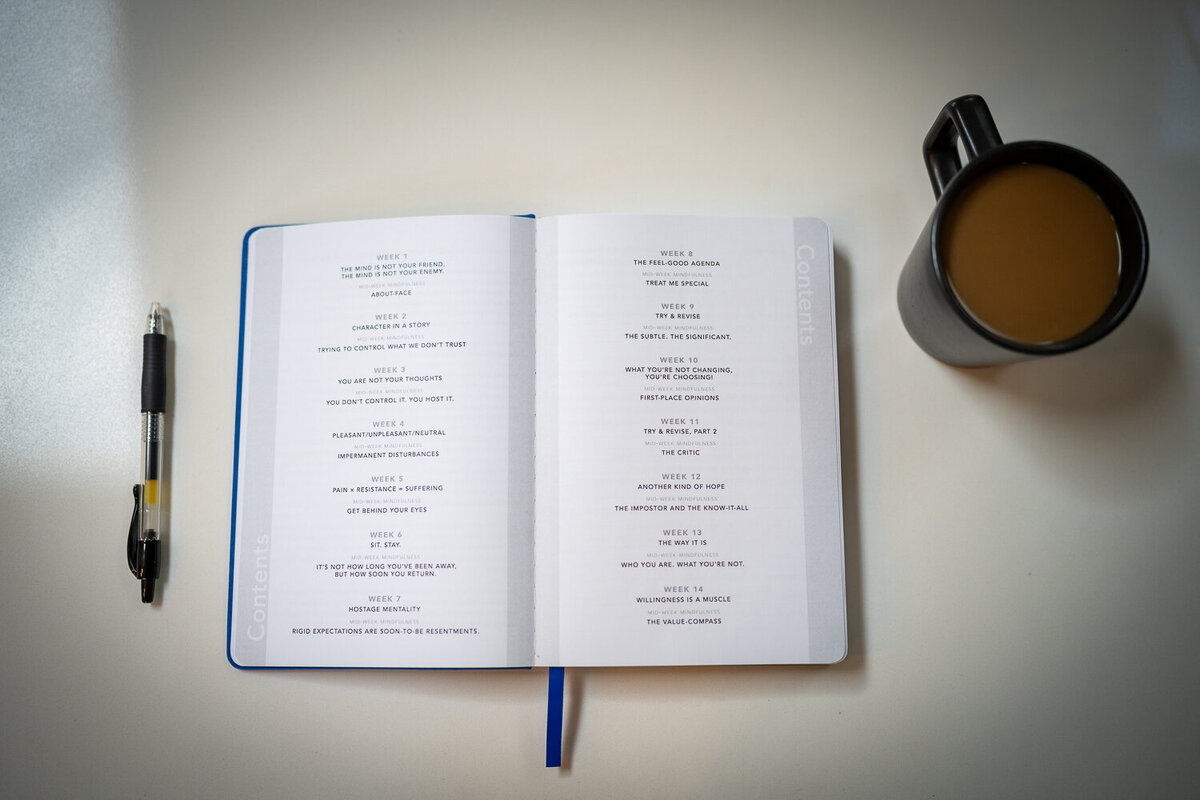 Contents
WEEK 1
THE MIND IS NOT YOUR FRIEND.
THE MIND IS NOT YOUR ENEMY.
MID-WEEK MINDFULNESS
ABOUT-FACE
WEEK 2
CHARACTER IN A STORY
MID-WEEK MINDFULNESS
TRYING TO CONTROL WHAT WE DON'T TRUST
WEEK 3
YOU ARE NOT YOUR THOUGHTS
MID-WEEK MINDFULNESS
YOU DON'T CONTROL IT. YOU HOST IT.
WEEK 4
PLEASANT/UNPLEASANT/NEUTRAL
MID-WEEK MINDFULNESS
IMPERMANENT DISTURBANCES
WEEK 5
PAIN × RESISTANCE = SUFFERING
MID-WEEK MINDFULNESS
GET BEHIND YOUR EYES
WEEK 6
SIT. STAY.
MID-WEEK MINDFULNESS
IT'S NOT HOW LONG YOU'VE BEEN AWAY,
BUT HOW SOON YOU RETURN.
WEEK 7
HOSTAGE MENTALITY
MID-WEEK MINDFULNESS
RIGID EXPECTATIONS ARE SOON-TO-BE RESENTMENTS.
Contents
WEEK 8
THE FEEL-GOOD AGENDA
MID-WEEK MINDFULNESS
TREAT ME SPECIAL
WEEK 9
TRY & REVISE
MID-WEEK MINDFULNESS
THE SUBTLE. THE SIGNIFICANT.
WEEK 10
WHAT YOU'RE NOT CHANGING,
YOU'RE CHOOSING!
MID-WEEK MINDFULNESS
FIRST-PLACE OPINIONS
WEEK 11
TRY & REVISE, PART 2
MID-WEEK MINDFULNESS
THE CRITIC
WEEK 12
ANOTHER KIND OF HOPE
MID-WEEK MINDFULNESS
THE IMPOSTOR AND THE KNOW-IT-ALL
WEEK 13
THE WAY IT IS
MID-WEEK MINDFULNESS
WHO YOU ARE. WHAT YOU'RE NOT.
WEEK 14
WILLINGNESS IS A MUSCLE
MID-WEEK MINDFULNESS
THE VALUE-COMPASS